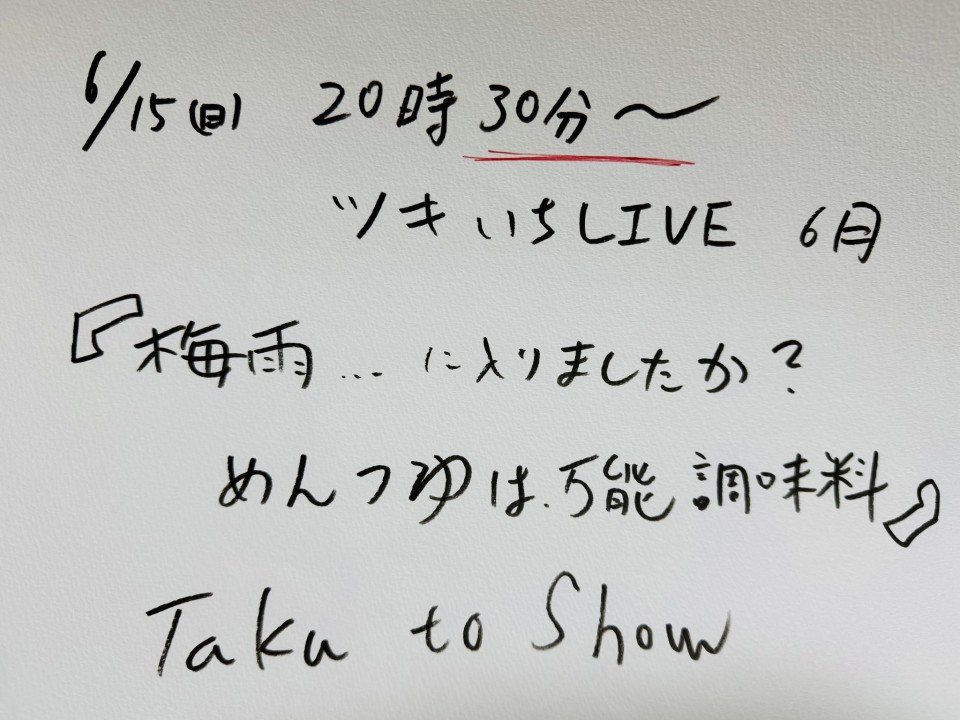 6/15(日) 20時30分〜
ツキいちLIVE 6月
『梅雨...に入りましたか?
めんつゆは、万能調味料』
Taku to Show